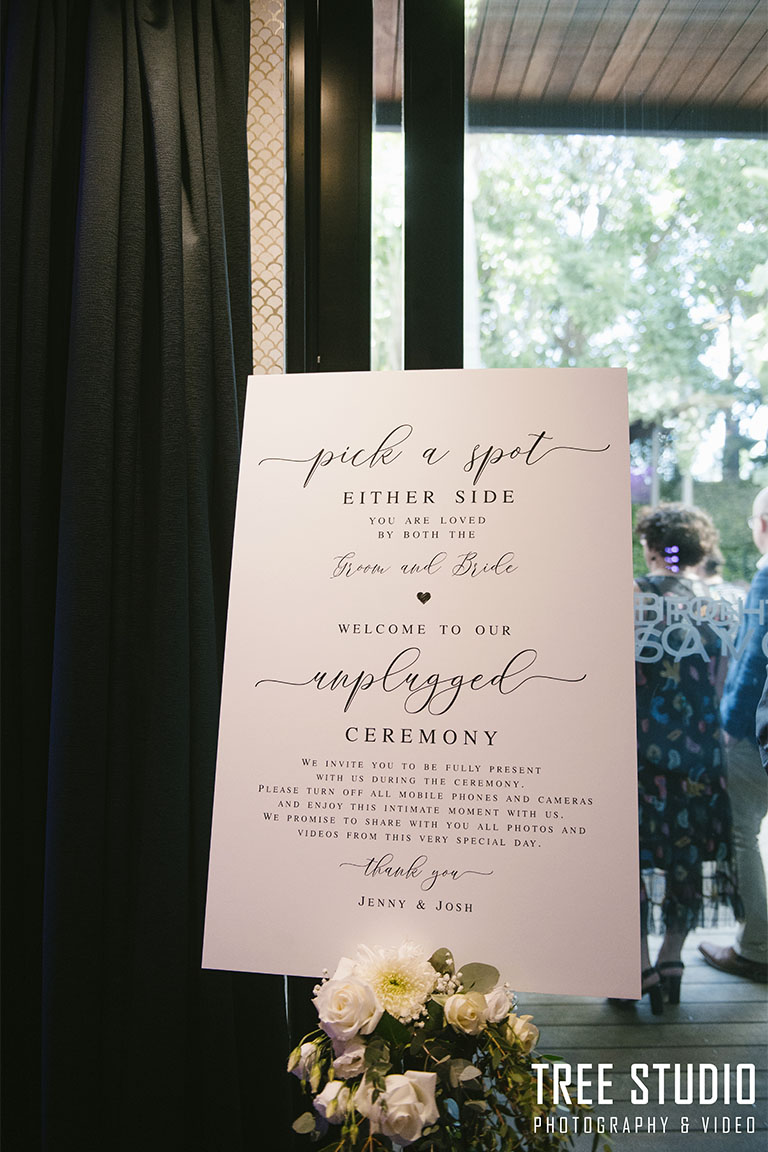 pick a spot
EITHER SIDE
YOU ARE LOVED
BY BOTH THE
Groom and Bride
WELCOME TO OUR
unplugged
CEREMONY
WE INVITE YOU TO BE FULLY PRESENT
WITH US DURING THE CEREMONY.
PLEASE TURN OFF ALL MOBILE PHONES AND CAMERAS
AND ENJOY THIS INTIMATE MOMENT WITH US.
WE PROMISE TO SHARE WITH YOU ALL PHOTOS AND
VIDEOS FROM THIS VERY SPECIAL DAY.
thank you
JENNY & JOSH
TREE STUDIO
PHOTOGRAPHY & VIDEO